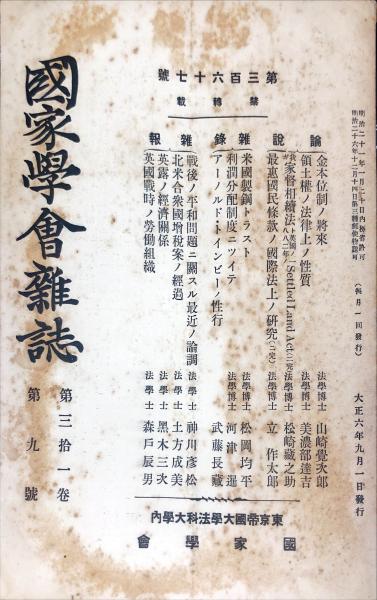 明治二十六年十二月十四日第三種郵便物認可
(毎月一回發行)
大正六年九月一日發行
第三百六十七號
禁轉載
論說
金本位制ノ將來 法學博士 山崎覺次郎
領土權ノ法律上ノ性質 法學博士 美濃部達吉
家督相續法 Settled Land Act 法學博士 松崎藏之助
最惠國民條款ノ國際法上ノ研究(二完) 法學博士 立作太郎
雜錄
米國製鋼トラスト 法學博士 松岡均平
利潤分配制度ニツイテ 法學博士 河津暹
アーノルド・トインビーノ性行 武藤長藏
雜報
戰後ノ平和問題ニ關スル最近ノ論調 法學士 神川彥松
北米合衆國增稅案ノ經過 法學士 土方成美
英露ノ經濟關係 法學士 黑木三次
英國戰時ノ勞働組織 法學士 森戶辰男
東京帝國大學法科大學內
國家學會
國家學會雜誌
第三拾一卷
第九號